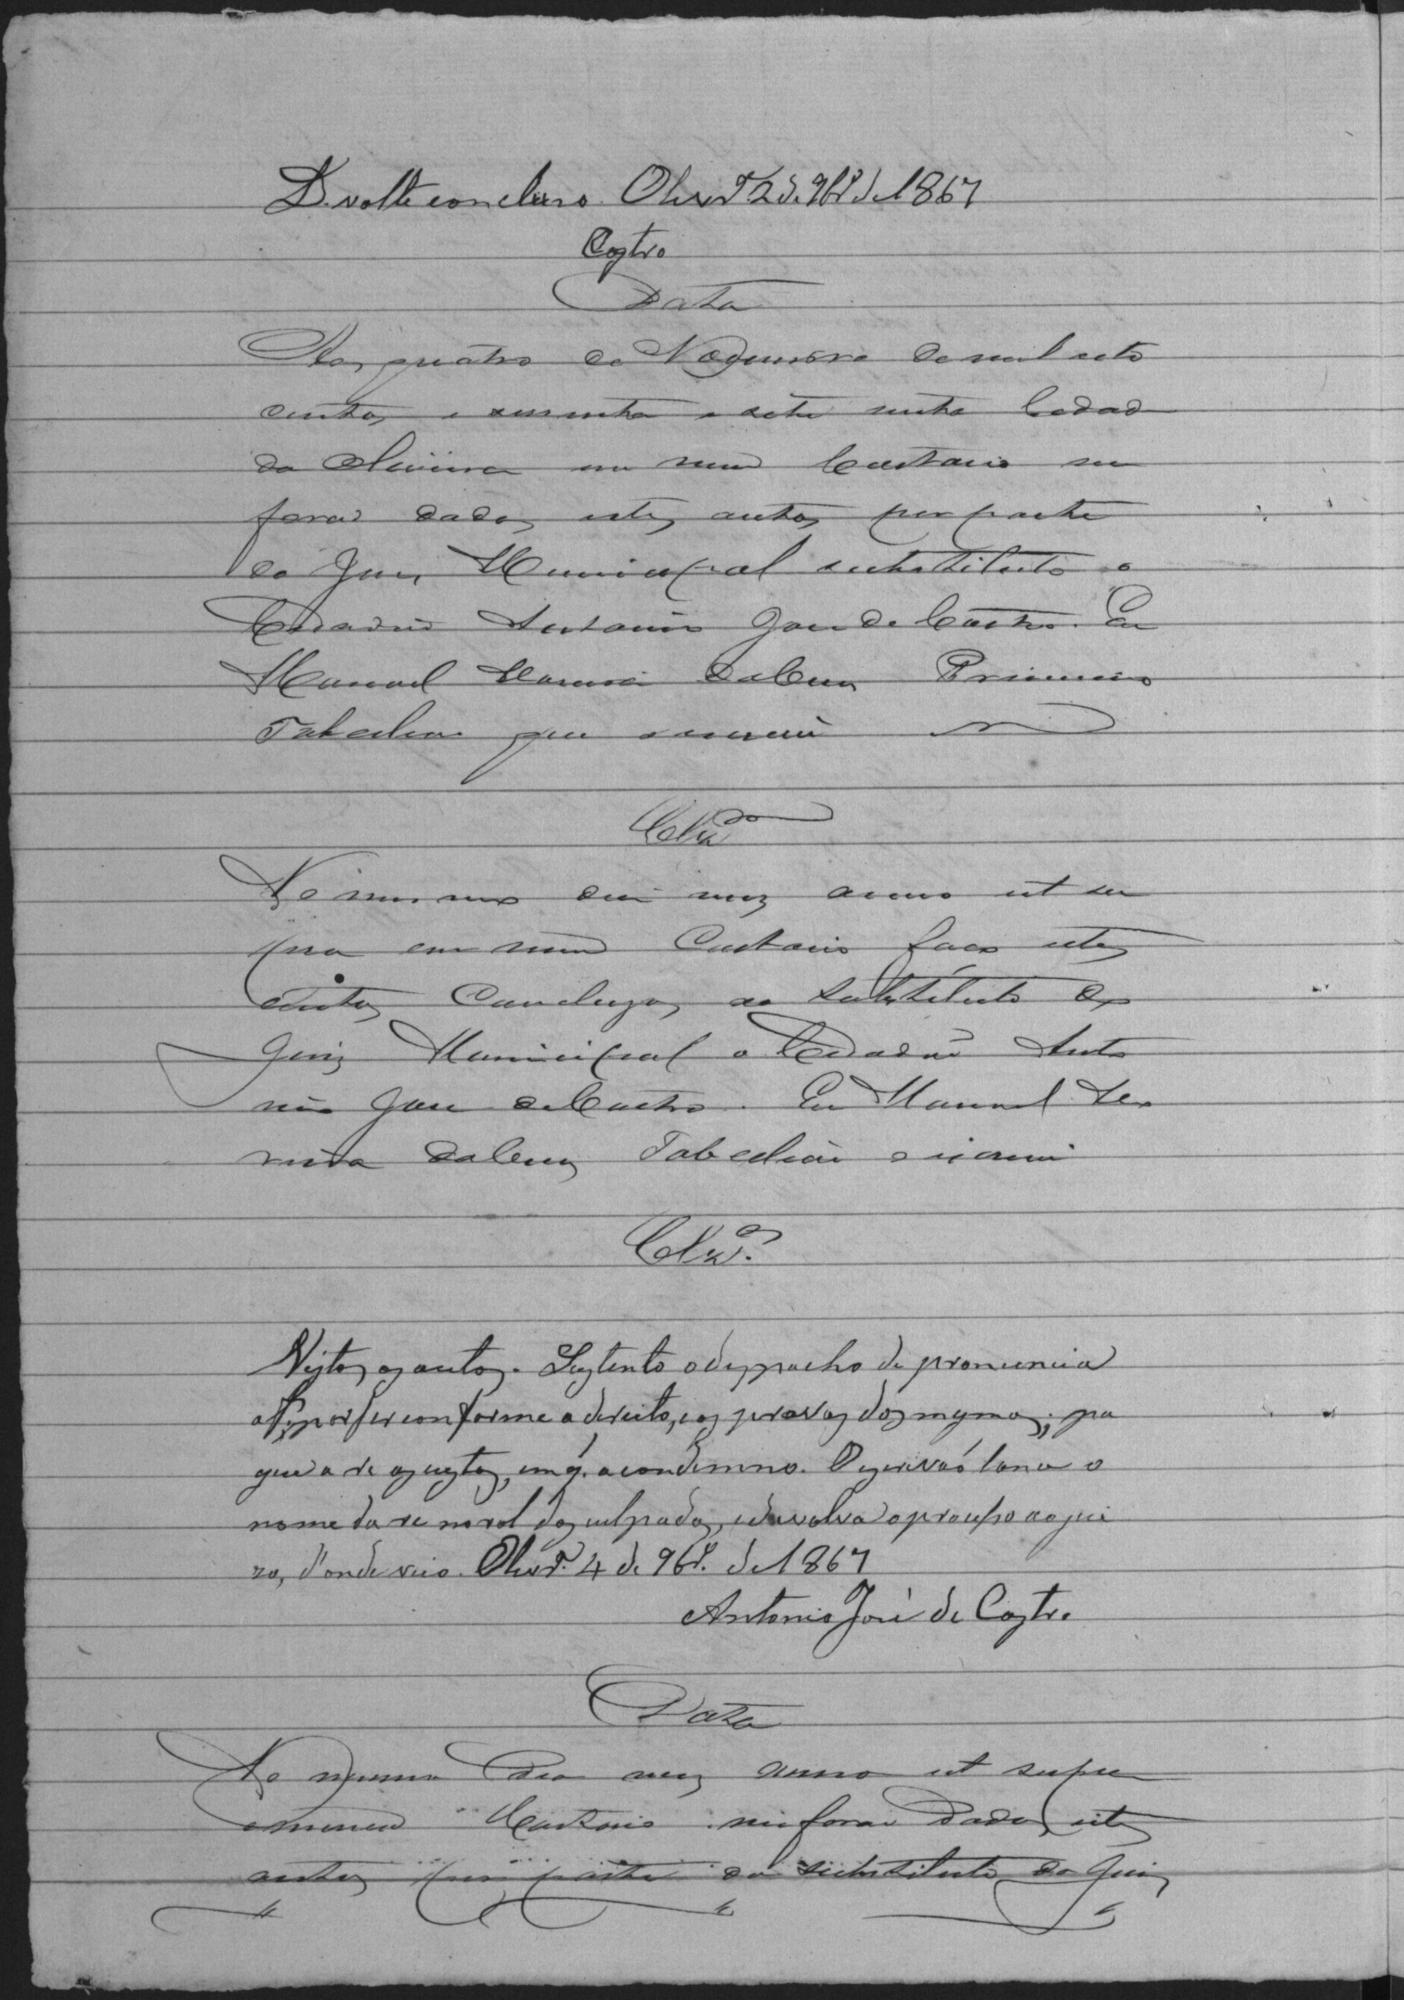 D. volte concluso. Olivr.ª 2 de 9br.º de 1867
Castro
Data
Aos quatro de Novembro de mil oito
centos e sessenta e sete nesta Cidade
da Oliveira em meu Cartorio me
forao dados estes autos por parte
do Juis Municipal substituto o
Cidadão Antonio Jose de Castro. Eu
Manoel Ferreira da Cruz Primeiro
Tabelião que escrevi
Clz.ão
No mesmo dia mez anno ut su
pra em meu Cartorio faço estes
autos Concluzos ao substituto do
Juiz Municipal o Cidadão Anto
nio Jose de Castro. Eu Manoel Fer
reira da Cruz Tabelião o escrevi
Clz.º
Vistos os autos. Sustento o despacho de pronuncia
por ser conforme a direito, e as provas dos mesmos; pa
gue a ré as custas, em q. a condemno. O escrivão lance o
nome da ré no rol dos culpados, e devolva o processo ao jui
zo, d'onde veio. Olivr.ª 4 de 9br.º de 1867
Antonio José de Castro
Data
No mesmo dia mez anno ut supra
em meu Cartorio me forao dados estes
autos por parte do substituto do Juiz